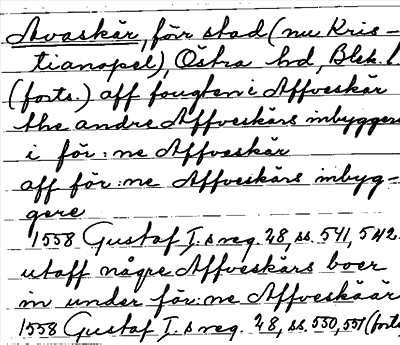 Avaskär, förr stad (nu Kris-
tianopel), Östra hd, Blek. l
(forts.) aff fougten i Affveskär
the andre Affveskärs inbyggere
i för:ne Affveskär
aff för:ne Affveskärs inbyg-
gere
1558 Gustaf I.s reg. 28, ss. 541, 542.
utaff någre Affveskärs boer
in under för:ne Affveskäär
1558 Gustaf I.s reg. 28, ss. 550, 551 (forts